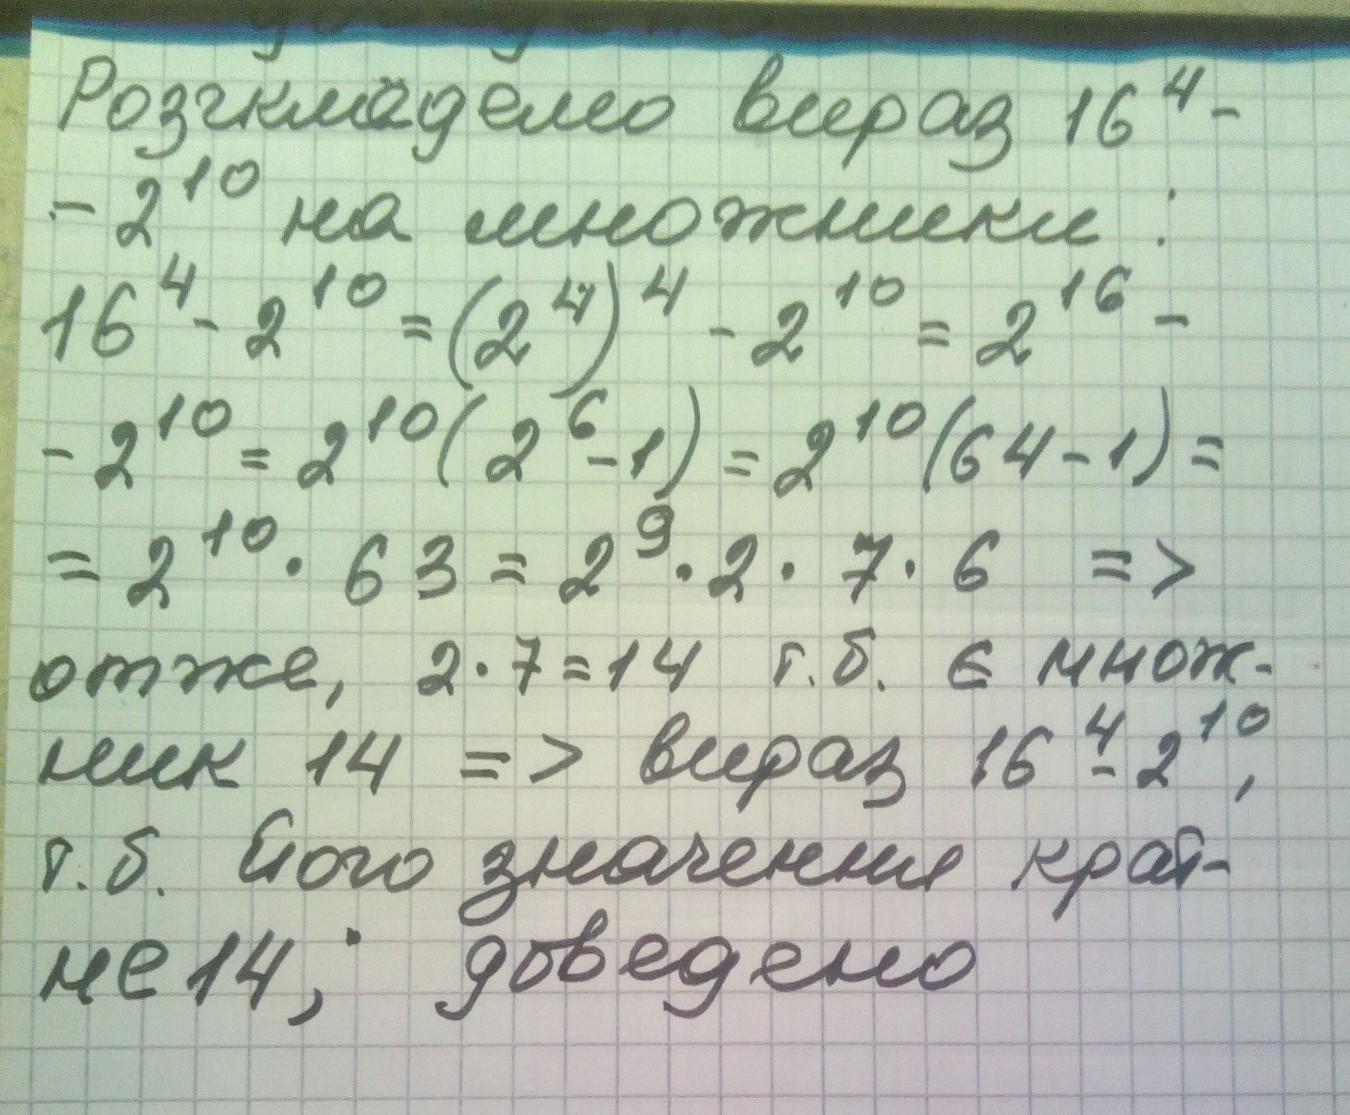 Розгкладемо вираз 16⁴ -
- 2¹⁰ на множники :
16⁴ - 2¹⁰ = (2⁴)⁴ - 2¹⁰ = 2¹⁶ -
- 2¹⁰ = 2¹⁰(2⁶ - 1) = 2¹⁰(64 - 1) =
= 2¹⁰ · 63 = 2⁹ · 2 · 7 · 6 =>
отже, 2 · 7 = 14 т.б. є множ-
ник 14 => вираз 16⁴ - 2¹⁰,
т.б. його значення крат-
не 14; доведено